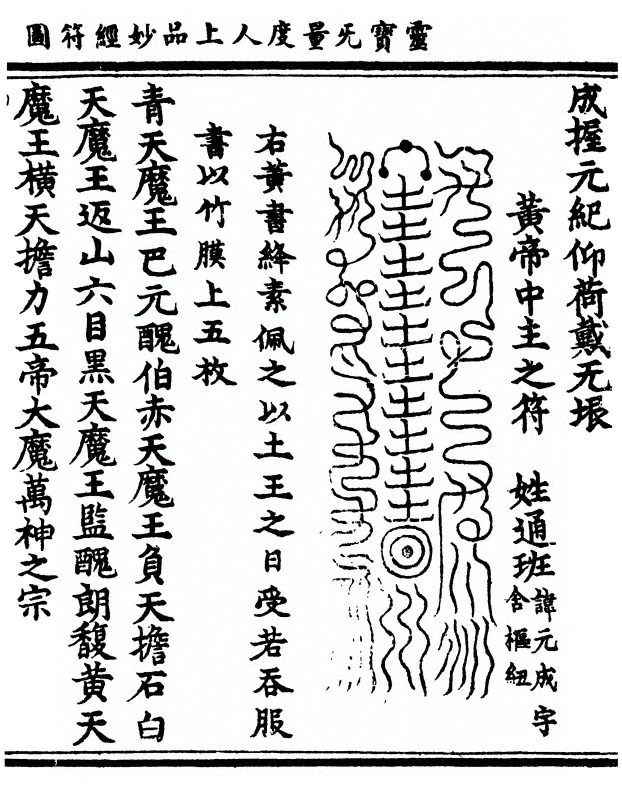 靈寳无量度人上品妙經符圖
成握元紀仰荷戴无垠
黃帝中主之符 姓通班 諱元成字
含樞紐
右黃書絳素佩之以土王之日受若吞服
書以竹膜上五枚
青天魔王巴元醜伯赤天魔王負天擔石白
天魔王返山六目黑天魔王監醜朗馥黄天
魔王橫天擔力五帝大魔萬神之宗